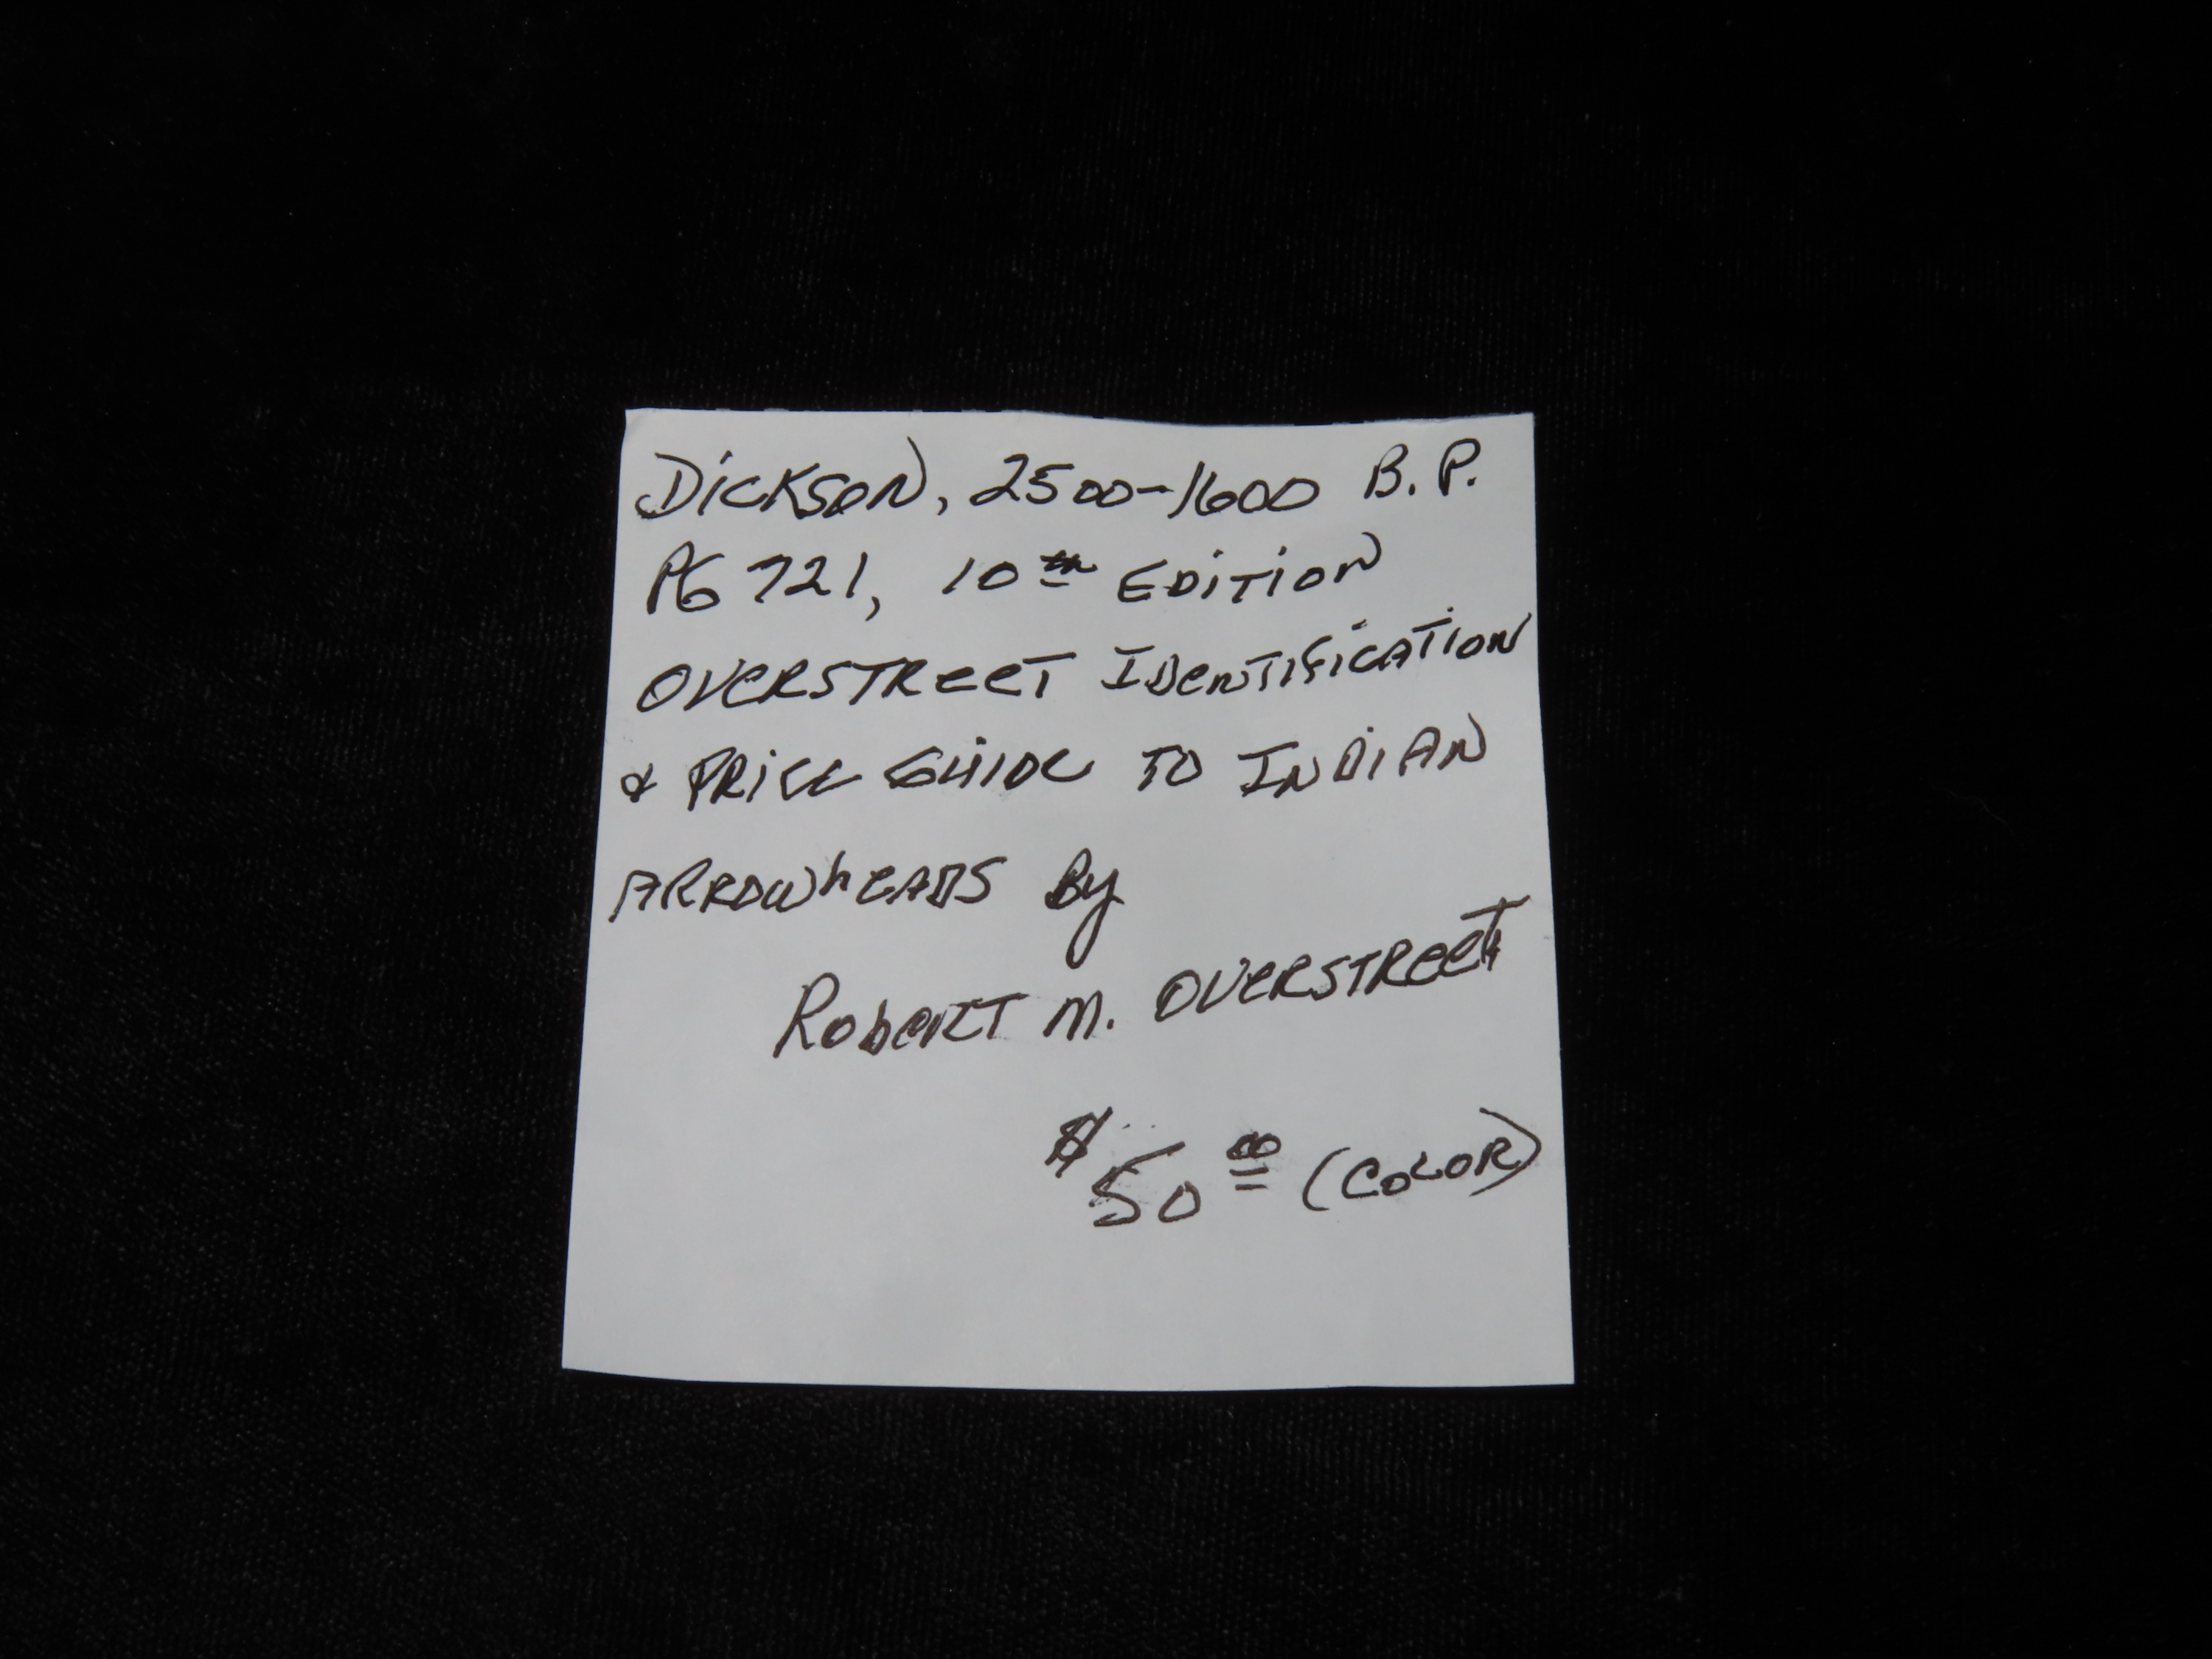 Dickson, 2500-1600 B.P.
PG 721, 10th EDITION
OVERSTREET IDENTIFICATION
& PRICE GUIDE TO INDIAN
ARROWHEADS By
ROBERT M. OVERSTREET
$50 00 (COLOR)